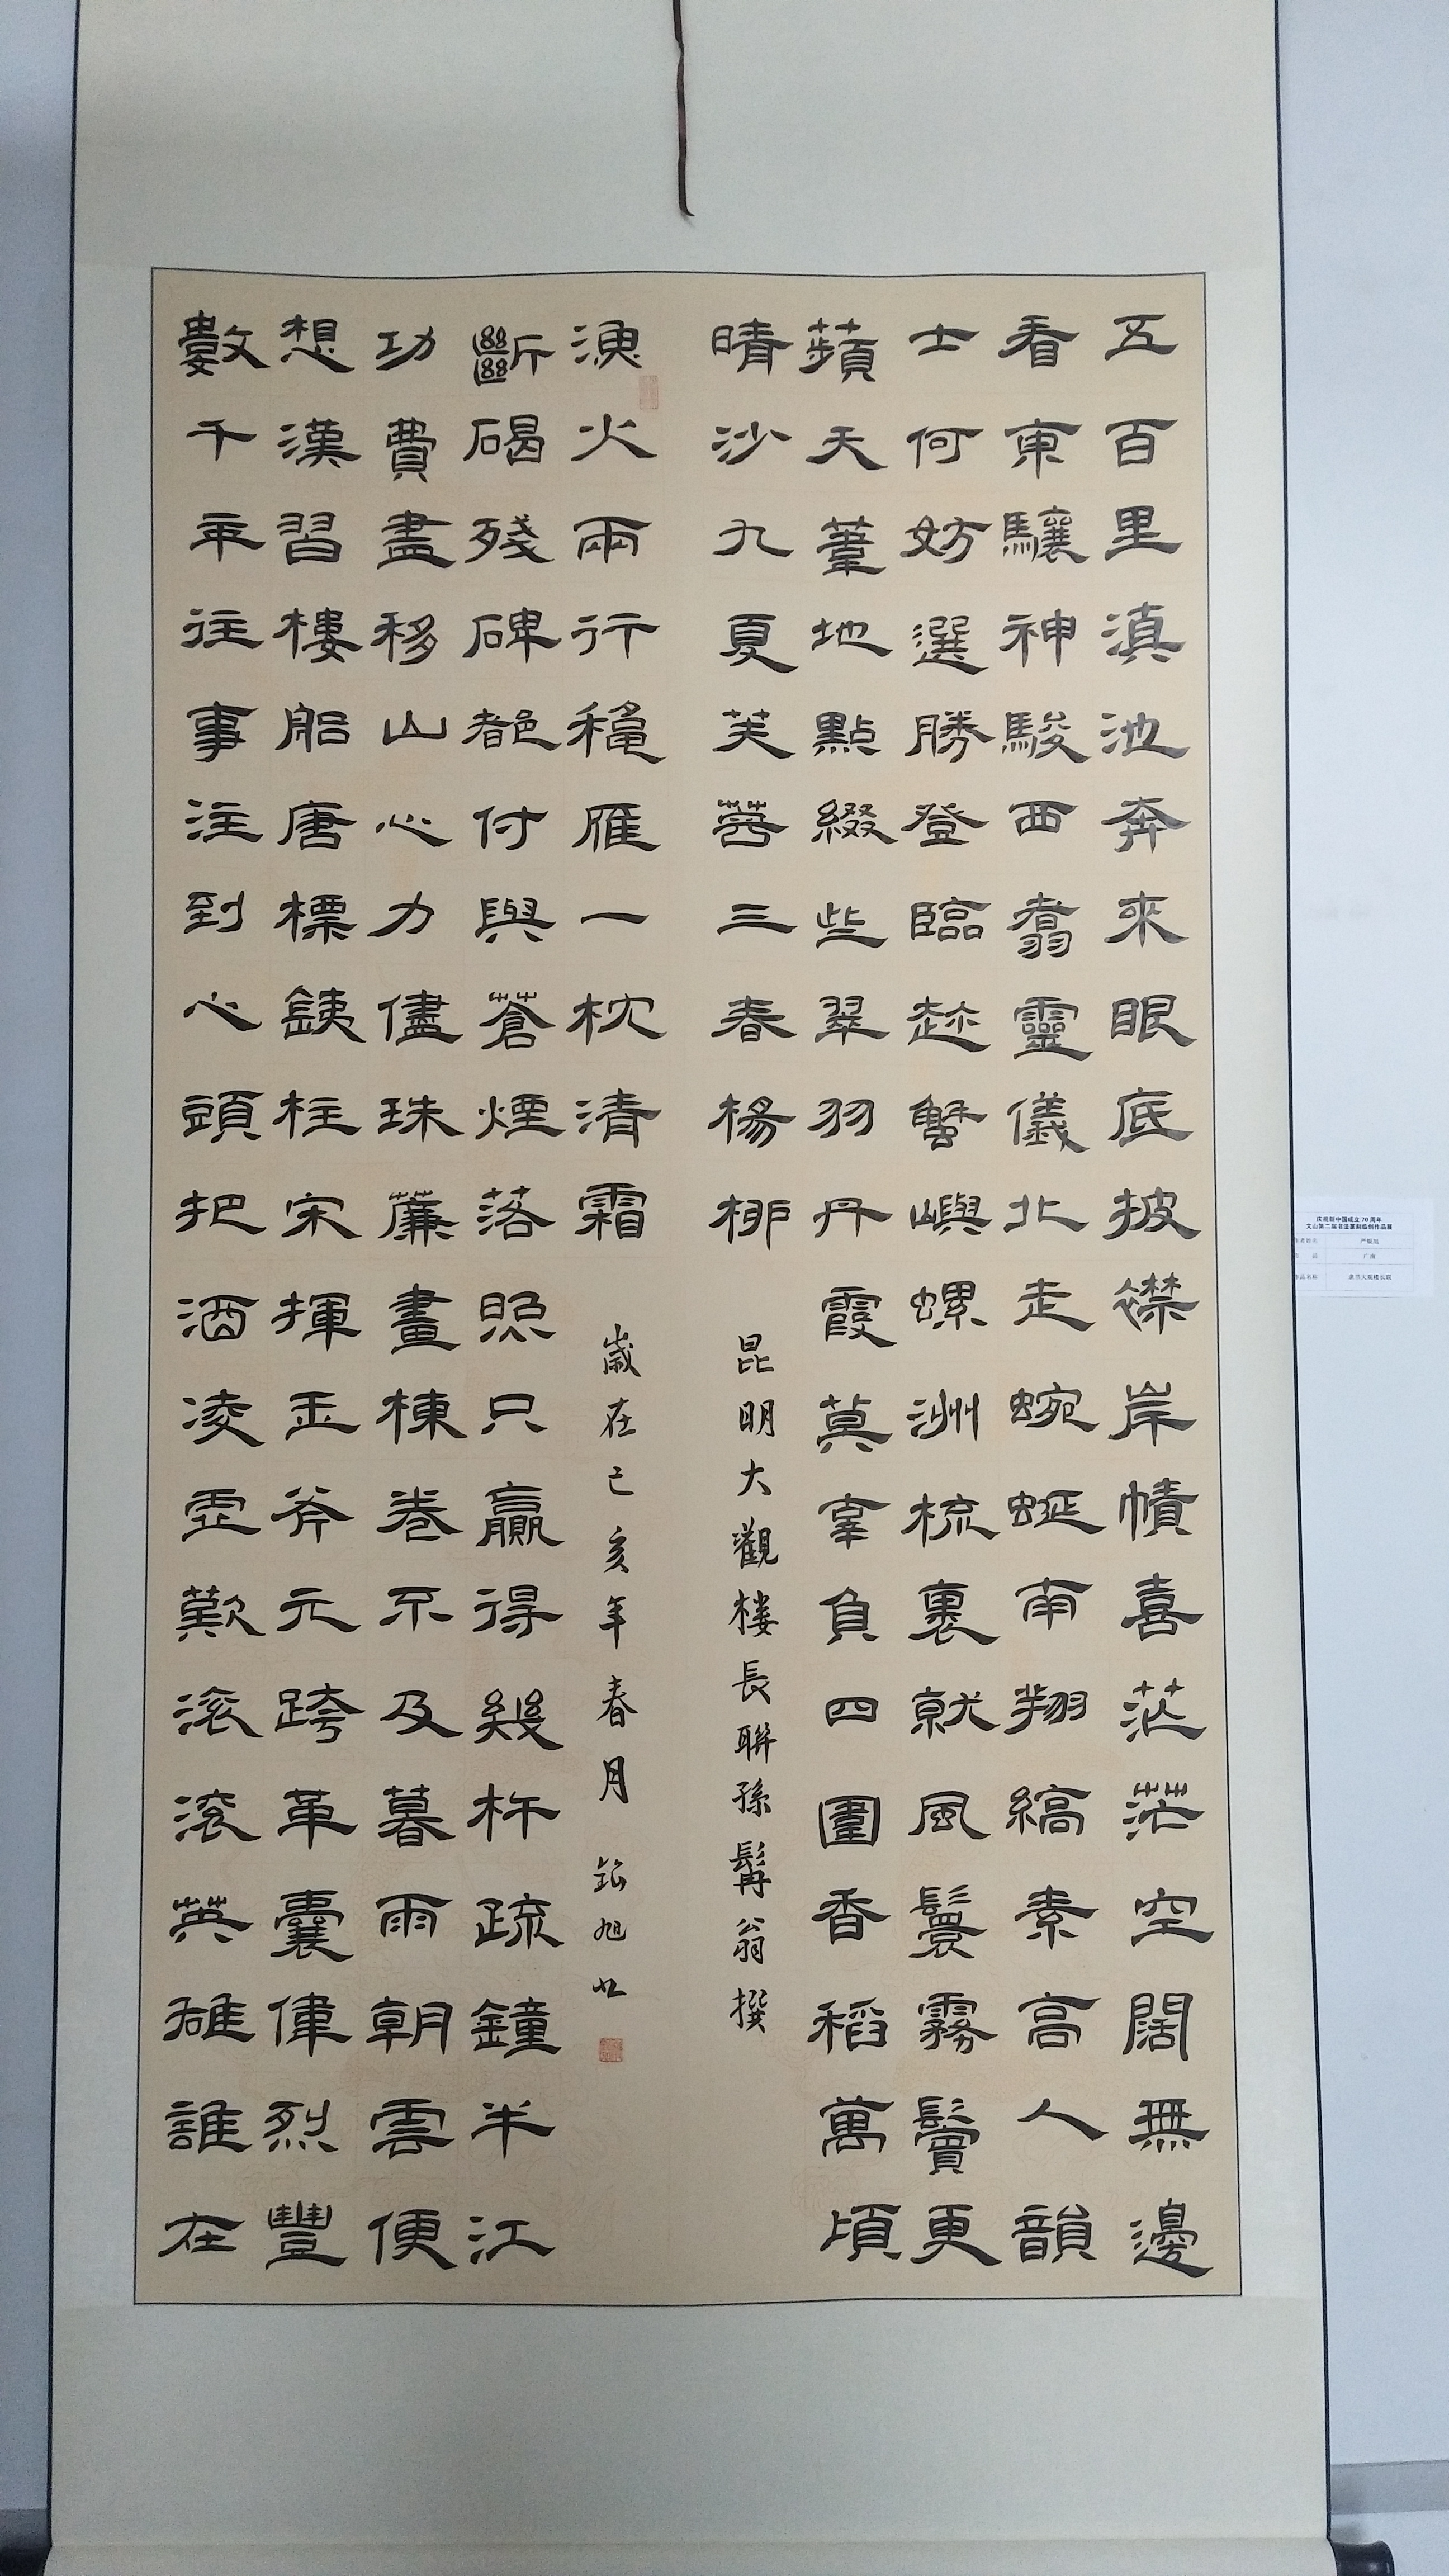 五百里滇池奔來眼底披襟岸幘喜茫茫空闊無邊
看東驤神駿西翥靈儀北走蜿蜒南翔縞素高人韻
士何妨選勝登臨趁蟹嶼螺洲梳裹就風鬟霧鬢更
蘋天葦地點綴些翠羽丹霞莫辜負四圍香稻萬頃
晴沙九夏芙蓉三春楊柳
昆明大觀樓長聯孫髯翁撰
數千年往事注到心頭把酒凌虛歎滾滾英雄誰在
想漢習樓船唐標鐵柱宋揮玉斧元跨革囊偉烈豐
功費盡移山心力儘珠簾畫棟卷不及暮雨朝雲便
斷碣殘碑都付與蒼煙落照只贏得幾杵疏鐘半江
漁火兩行穐雁一枕清霜
歲在己亥年春月 旭書
庆祝新中国成立70周年
文山第二届书法篆刻临创作品展
作者姓名
作品名称 隶书大观楼长联